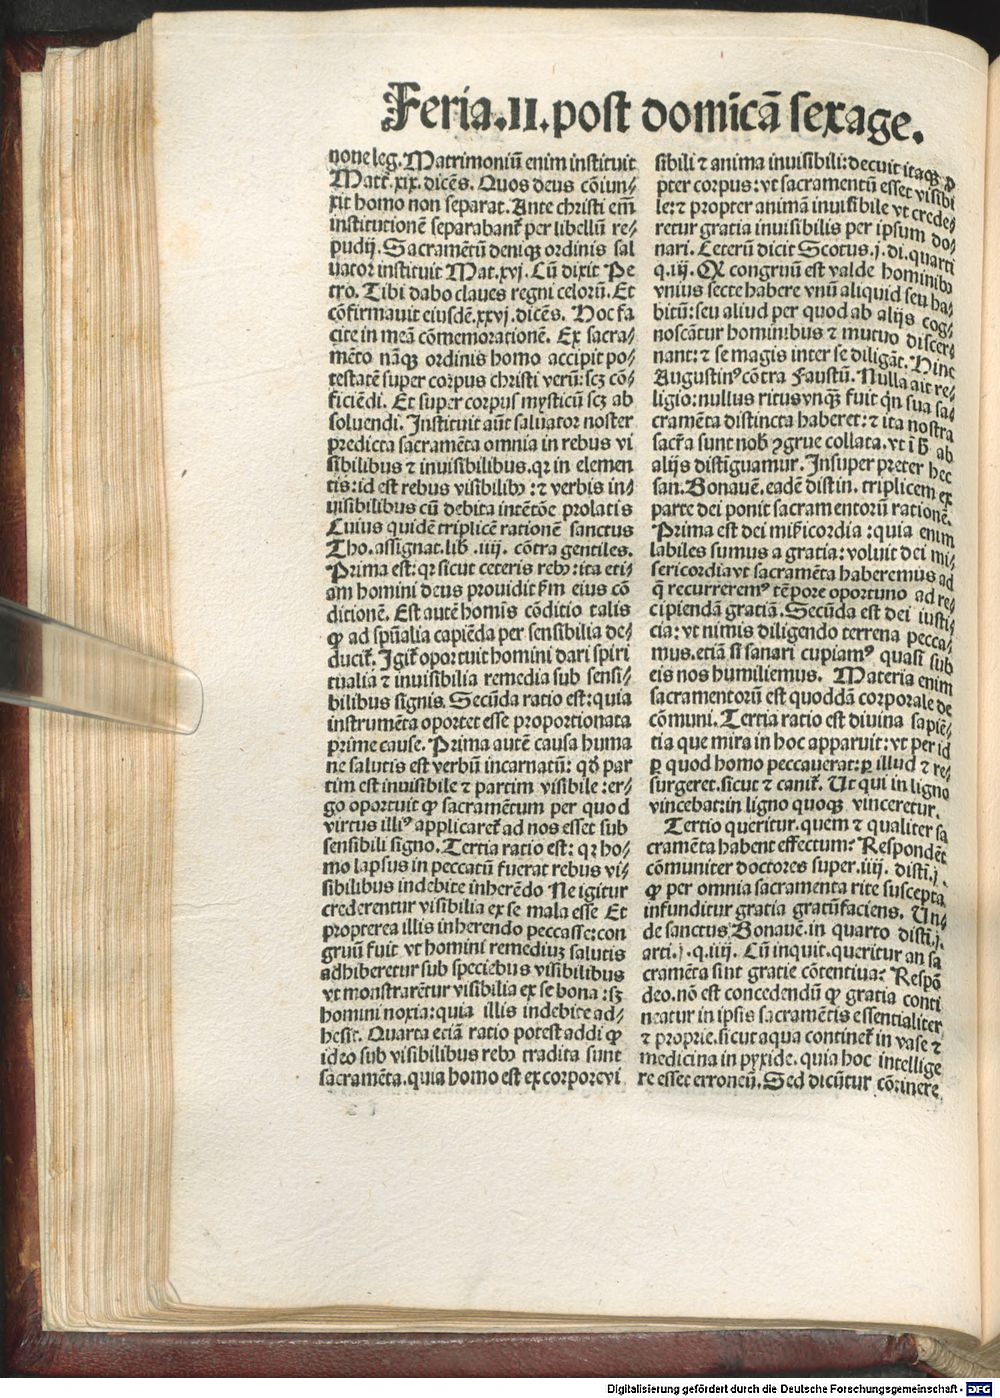 Feria.II.post domicā sexage.
none leg. Matrimoniū enim instituit
Matt̄.xix.dicēs. Quos deus cōiun⸗
xit homo non separat. Ante christi em̄
institutionē separabant̄ per libellū re⸗
pudij. Sacramētū deniqꝫ ordinis sal
uator instituit Mat.xvj. Cū dixit Pe
tro. Tibi dabo claues regni celorū. Et
cōfirmauit eiusdē.xxvj.dicēs. Hoc fa
cite in meā cōmemorationē. Ex sacra⸗
mēto nāqꝫ ordinis homo accipit po⸗
testatē super corpus christi verū: scꝫ cō⸗
ficiēdi. Et super corpus mysticū scꝫ ab
soluendi. Instituit aūt saluator noster
predicta sacramēta omnia in rebus vi
sibilibus ⁊ inuisibilibus. qꝛ in elemen
tis: id est rebus visibilibꝰ: ⁊ verbis in⸗
uisibilibus cū debita intētōe prolatis
Cuius quidē triplicē rationē sanctus
Tho. assignat. lib̄ .iiij. cōtra gentiles.
Prima est: qꝛ sicut ceteris rebꝰ: ita eti⸗
am homini deus prouidit f̄m eius cō
ditionē. Est autē homīs cōditio talis
ꝙ ad spūalia capiēda per sensibilia de⸗
ducit̄. Igit̄ oportuit homini dari spiri
tualia ⁊ inuisibilia remedia sub sensi⸗
bilibus signis. Secūda ratio est: quia
instrumēta oportet esse proportionata
prime cause. Prima autē causa huma
ne salutis est verbū incarnatū: qđ par
tim est inuisibile ⁊ partim visibile: er⸗
go oportuit ꝙ sacramētum per quod
virtus illiꝰ applicaret̄ ad nos esset sub
sensibili signo. Tertia ratio est: qꝛ ho⸗
mo lapsus in peccatū fuerat rebus vi⸗
sibilibus indebite inherēdo Ne igitur
crederentur visibilia ex se mala esse Et
propterea illis inherendo peccasse: con
gruū fuit vt homini remediuꝫ salutis
adhiberetur sub speciebus visibilibus
vt monstrarētur visibilia ex se bona: sꝫ
homini noxia: quia illis indebite ad⸗
hesit. Quarta etiā ratio potest addi ꝙ
ideo sub visibilibus rebꝰ tradita sunt
sacramēta. quia homo est ex corpore vi
sibili ⁊ anima inuisibili: decuit itaqꝫ ꝓ
pter corpus: vt sacramentū esset visibi
le: ⁊ propter animā inuisibile vt crede⸗
retur gratia inuisibilis per ipsum do⸗
nari. Ceterū dicit Scotus.j.di.quarti
q.iij. Qꝛ congruū est valde hominibꝰ
vnius secte habere vnū aliquid seu ha⸗
bitū: seu aliud per quod ab alijs cog⸗
noscātur hominibus ⁊ mutuo discer⸗
nant: ⁊ se magis inter se diligāt. Hinc
Augustinꝰ cōtra Faustū. Nulla ait re⸗
ligio: nullus ritus vnqꝫ fuit qn̄ sua sa⸗
cramēta distincta haberet: ⁊ ita nostra
sacr̄a sunt nob̄ ꝯgrue collata. vt ī ħ ab
alijs distīguamur. Insuper preter hec
san. Bonauē. eadē distin. triplicem ex
parte dei ponit sacramentorū rationē.
Prima est dei mīẜicordia: quia enim
labiles sumus a gratia: voluit dei mi⸗
sericordia vt sacramēta haberemus ad
q̄ recurreremꝰ tēpore oportuno ad re⸗
cipiendā gratiā. Secūda est dei iusti⸗
cia: vt nimis diligendo terrena pecca⸗
mus. etiā si sanari cupiamꝰ quasi sub
eis nos humiliemus. Materia enim
sacramentorū est quoddā corporale de
cōmuni. Tertia ratio est diuina sapiē⸗
tia que mira in hoc apparuit: vt per id
ꝑ quod homo peccauerat: ꝑ illud ⁊ re⸗
surgeret. sicut ⁊ canit̄. Ut qui in ligno
vincebat: in ligno quoqꝫ vinceretur.
Tertio queritur. quem ⁊ qualiter sa
cramēta habent effectum? Respondēt
cōmuniter doctores super.iiij. disti.j.
ꝙ per omnia sacramenta rite suscepta
infunditur gratia gratūfaciens. Un⸗
de sanctus Bonauē. in quarto disti.j.
arti.j.q.iiij. Cū inquit. queritur an sa
cramēta sint gratie cōtentiua? Respō
deo. nō est concedendū ꝙ gratia conti
neatur in ipsis sacramētis essentialiter
⁊ proprie. sicut aqua continet̄ in vase ⁊
medicina in pyxide. quia hoc intellige
re esset erroneū. Sed dicūtur cōtinere
Digitalisierung gefördert durch die Deutsche Forschungsgemeinschaft - DFG